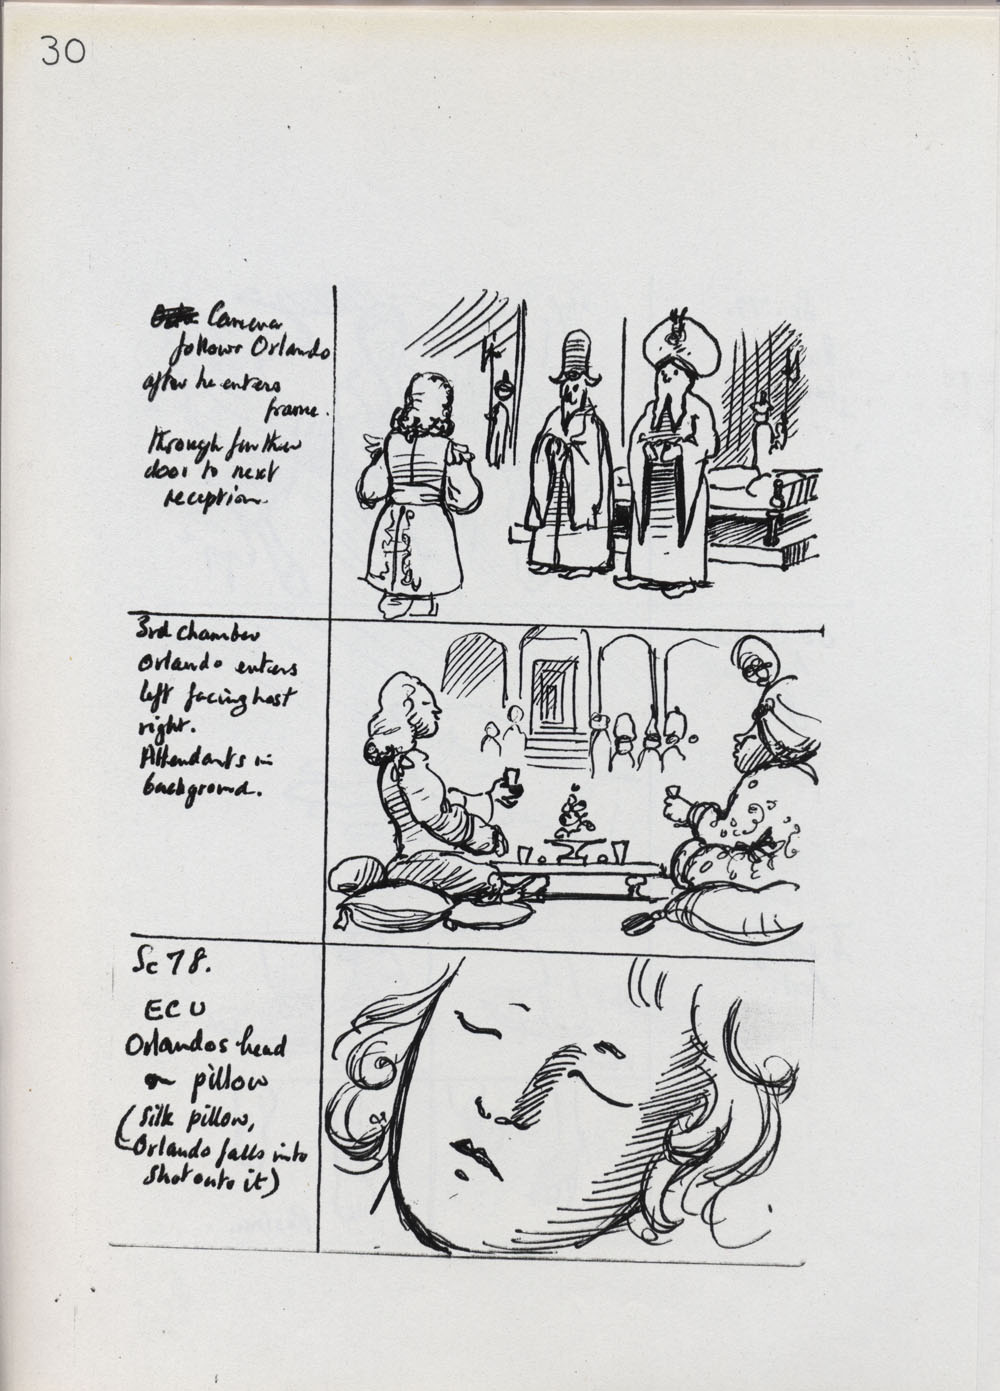 30
Camera
follows Orlando
after he enters
frame.
through further
door to next
reception.
3rd chamber
Orlando enters
left facing host
right.
Attendants in
background.
Sc 78.
ECU
Orlandos head
on pillow
(Silk pillow,
Orlando falls into
shot onto it)